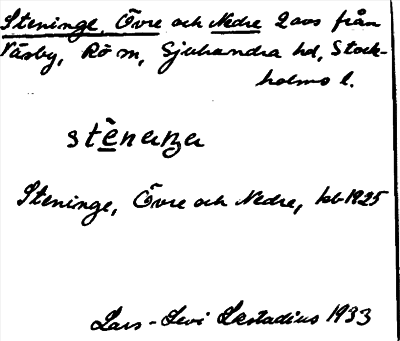 Steninge, Övre och Nedre 2 avs från
Väsby, Rö sn, Sjuhundra hd, Stock-
holms l.
Steninge, Övre och Nedre, kb 1925
Lars-Levi Læstadius 1933